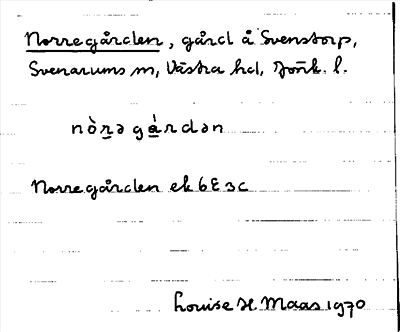 Norregården, gård å Svenstorp,
Svenarums sn, Västra hd, Jönk. l.
nòrə gárdən
Norregården ek 6E3c
Louise H. Maas 1970